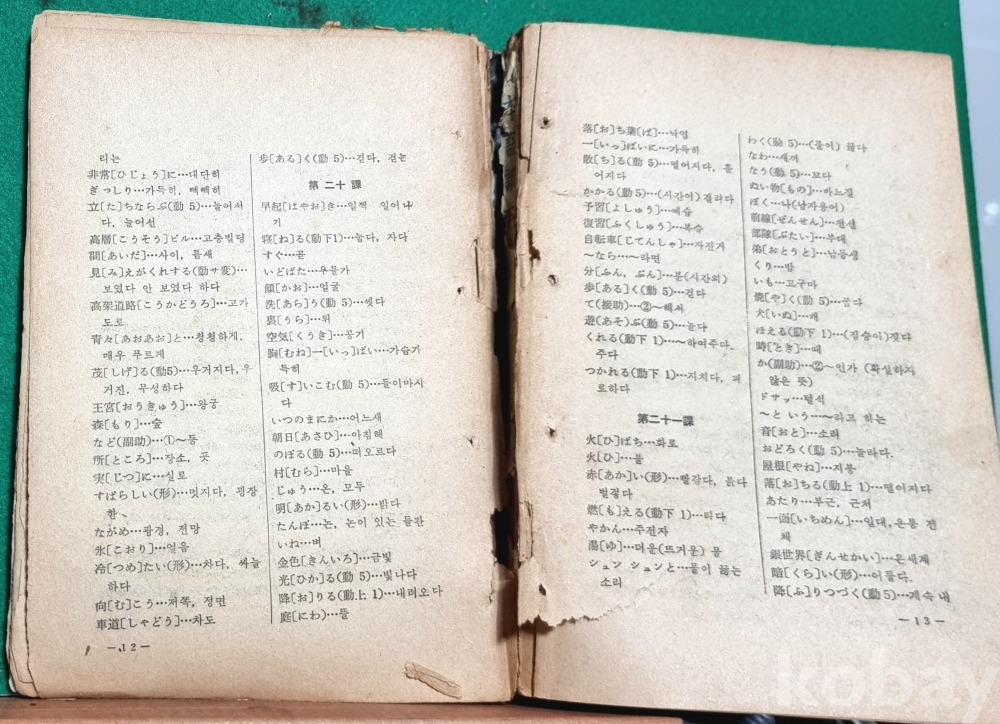 리는
非常[ひじょう]に…대단히
ぎっしり…가득히, 빽빽히
立[た]ちならぶ(動5)…늘어서
다, 늘어선
高層[こうそう]ビル…고층빌딩
間[あいだ]…사이, 틈새
見[み]えがくれする(動サ変)…
보였다 안 보였다 하다
高架道路[こうかどうろ]…고가
도로
青々[あおあお]と…청청하게,
매우 푸르게
茂[しげ]る(動5)…우거지다, 우
거진, 무성하다
王宮[おうきゅう]…왕궁
森[もり]…숲
など(副助)…①～등
所[ところ]…장소, 곳
実[じつ]に…실로
すばらしい(形)…멋지다, 굉장
한
ながめ…광경, 전망
氷[こおり]…얼음
冷[つめ]たい(形)…차다, 싸늘
하다
向[む]こう…저쪽, 정면
車道[しゃどう]…차도
—12—
歩[ある]く(動5)…걷다, 걷는
第二十課
早起[はやお]き…일찍 일어나
기
寝[ね]る(動下1)…눕다, 자다
すぐ…곧
いどばた…우물가
顔[かお]…얼굴
洗[あら]う(動5)…씻다
裏[うら]…뒤
空気[くうき]…공기
胸[むね]一[いっ]ぱい…가슴가
득히
吸[す]いこむ(動5)…들이마시
다
いつのまにか…어느새
朝日[あさひ]…아침해
のぼる(動5)…떠오르다
村[むら]…마을
じゅう…온, 모두
明[あか]るい(形)…밝다
たんぼ…논, 논이 있는 들판
いね…벼
金色[きんいろ]…금빛
光[ひか]る(動5)…빛나다
降[お]りる(動上1)…내려오다
庭[にわ]…뜰
落[お]ち葉[ば]…낙엽
一[いっ]ぱいに…가득히
散[ち]る(動5)…떨어지다, 흩
어지다
かかる(動5)…(시간이)걸리다
予習[よしゅう]…예습
復習[ふくしゅう]…복습
自転車[じてんしゃ]…자전거
～なら…～라면
分[ふん, ぷん]…분(시간의)
歩[ある]く(動5)…걷다
て(接助)…②～해서
遊[あそ]ぶ(動5)…놀다
くれる(動下1)…～하여주다,
주다
つかれる(動下1)…지치다, 피
로하다
第二十一課
火[ひ]ばち…화로
火[ひ]…불
赤[あか]い(形)…빨갛다, 붉다
벌겋다
燃[も]える(動下1)…타다
やかん…주전자
湯[ゆ]…더운(뜨거운) 물
シュン シュンと…물이 끓는
소리
わく(動5)…(물이) 끓다
なわ…새끼
なう(動5)…꼬다
ぬい物[もの]…바느질
ぼく…나(남자용어)
前線[ぜんせん]…전선
部隊[ぶたい]…부대
弟[おとうと]…남동생
くり…밤
いも…고구마
焼[や]く(動5)…굽다
犬[いぬ]…개
ほえる(動下1)…(짐승이)짖다
時[とき]…때
か(副助)…②～인가 (확실하지
않은 뜻)
ドサッ…털석
～という…～라고 하는
音[おと]…소리
おどろく(動5)…놀라다.
屋根[やね]…지붕
落[お]ちる(動上1)…떨어지다
あたり…부근, 근처
一面[いちめん]…일대, 온통 전
체
銀世界[ぎんせかい]…은세계
暗[くら]い(形)…어둡다.
降[ふ]りつづく(動5)…계속 내
—13—
kobay